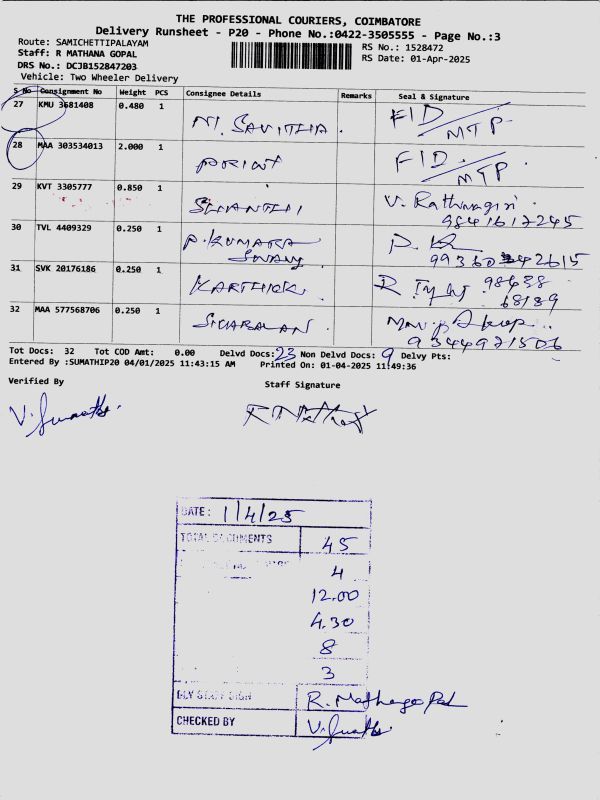 THE PROFESSIONAL COURIERS, COIMBATORE
Delivery Runsheet - P20 - Phone No.:0422-3505555 - Page No.:3
Route: SAMICHETTIPALAYAM
Staff: R MATHANA GOPAL
DRS No.: DCJB152847203
Vehicle: Two Wheeler Delivery
RS No.: 1528472
RS Date: 01-Apr-2025
S No Consignment No Weight PCS Consignee Details Remarks Seal & Signature
27 KMU 3681408 0.480 1 M. SAVITHA . FID / MTP
28 MAA 303534013 2.000 1 PRINT FID . / MTP
29 KVT 3305777 0.850 1 SHANTHI V. Rathnagiri 9841617245
30 TVL 4409329 0.250 1 P. KUMARA Swamy
31 SVK 20176186 0.250 1 KARTHICK R 98438 68189
32 MAA 577568706 0.250 1 9344971506
Tot Docs: 32 Tot COD Amt: 0.00 Delvd Docs: 23 Non Delvd Docs: 9 Delvy Pts:
Entered By :SUMATHIP20 04/01/2025 11:43:15 AM Printed On: 01-04-2025 11:49:36
Verified By Staff Signature
DATE: 1/4/25
TOTAL DOCUMENTS 45
4
12.00
4.30
8
3
DLY STAFF SIGN R. Mathanagopal
CHECKED BY